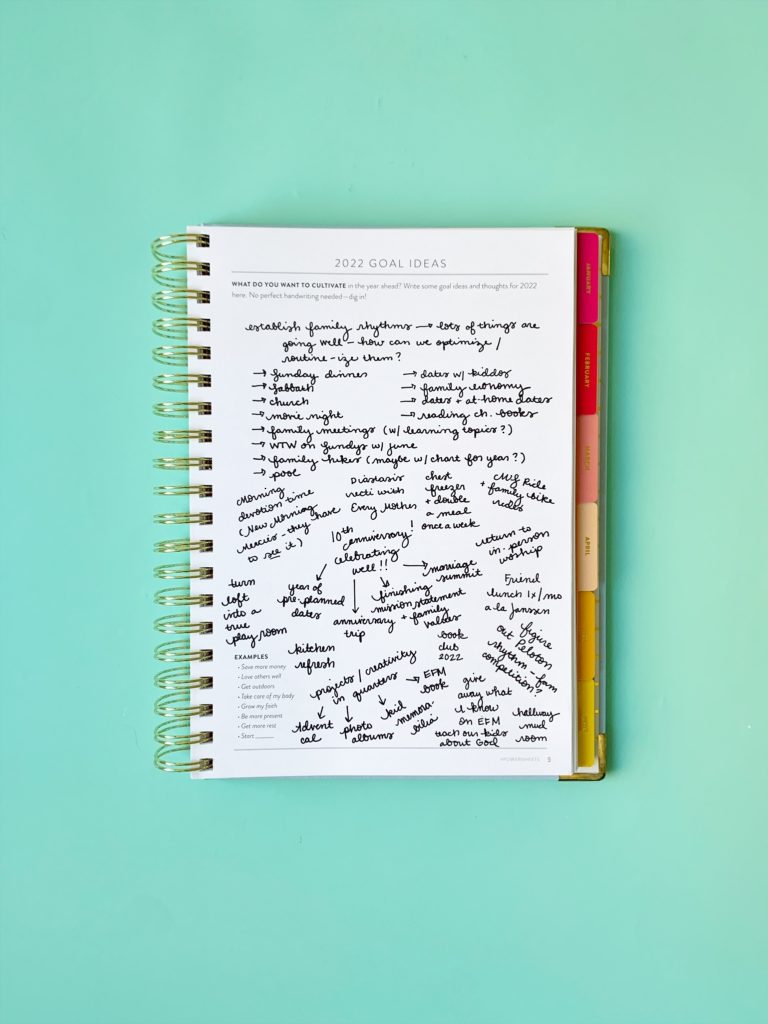 2022 GOAL IDEAS
WHAT DO YOU WANT TO CULTIVATE in the year ahead? Write some goal ideas and thoughts for 2022
here. No perfect handwriting needed—dig in!
establish family rhythms → lots of things are
going well – how can we optimize /
routine-ize them?
→ Sunday dinner
→ Sabbath
→ church
→ movie night
→ family meetings (w/ learning topics?)
→ WTW on Sundys w/ June
→ family hikes (maybe w/ chart for year?)
→ pool
→ dates w/ kiddos
→ family economy
→ dates + at-home dates
→ reading ch. books
Morning
devotion time
(New Morning
Mercies - they have
to see it)
Diastasis
recti with
Every Mother
chest
freezer
+ double
a meal
once a week
CMG Ride
+ family bike
rides
10th
anniversary!
celebrating
well!!
→ marriage
summit
return to
in-person
worship
turn
loft
into a
true
play room
year of
pre-planned
dates
anniversary
trip
finishing
mission statement
+ family
values
Friend
lunch 1x/mo
a la Janssen
kitchen
refresh
book
club
2022
figure
out Peloton
rhythm - fam
competition?
projects / creativity
in quarters
→ EFM
book
Advent
cal
photo
albums
kid
memora-
bilia
give
away what
I know
on EFM
teach our kids
about God
hallway
mud
room
EXAMPLES
• Save more money
• Love others well
• Get outdoors
• Take care of my body
• Grow my faith
• Be more present
• Get more rest
• Start ______
#POWERSHEETS 5
JANUARY
FEBRUARY
MARCH
APRIL